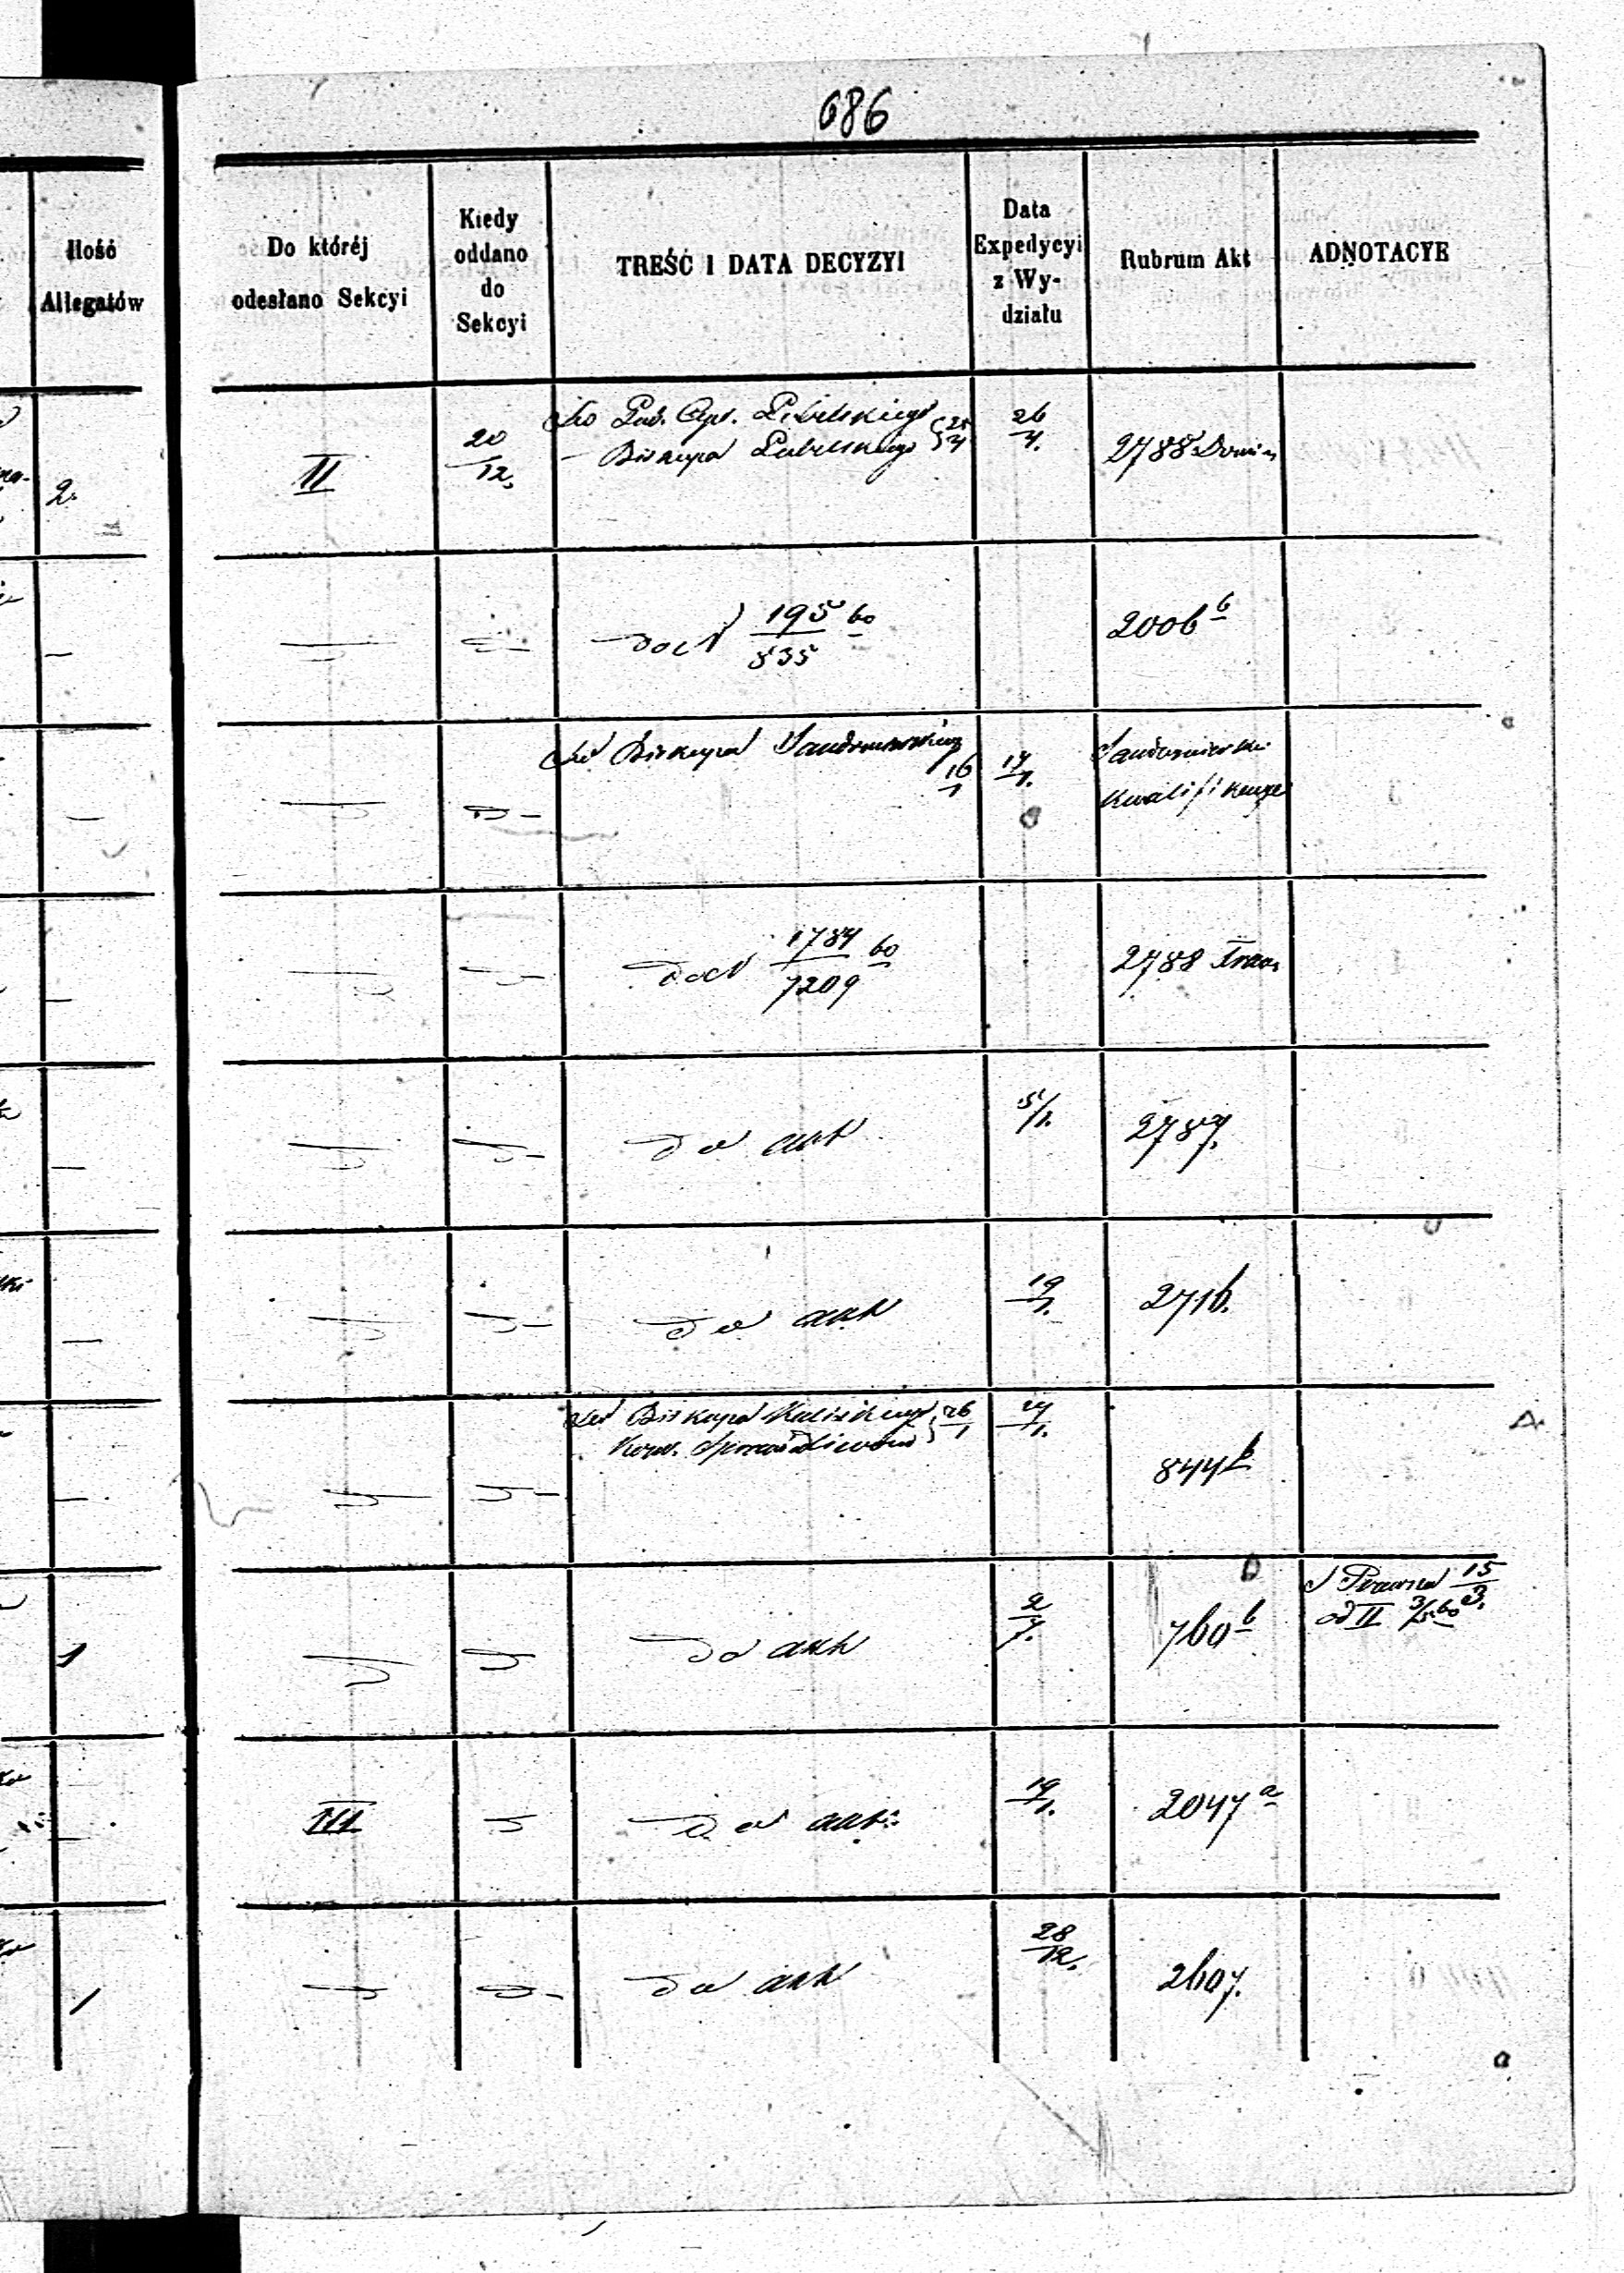 686
Ilość
Allegatów
Do któréj
odesłano Sekcyi
Kiedy
oddano
do
Sekcyi
TREŚĆ I DATA DECYZYI
Data
Expedycyi
z Wy-
działu
Rubrum Akt
ADNOTACYE
2.
II
20/12.
Do Gub. Cyw. Lubelskiego
Biskupa Lubelskiego
26/4.
2788
—
195/535 60
2006 b
—
Do Biskupa Sandomierskiego
16/1
17/1.
Sandomierskie
Kwalifikacye
—
1784/7209 60
2788
—
do akt
5/1.
2787.
—
do akt
19/1.
2716.
—
Do Biskupa Kaliskiego
26/1
27/1.
844 b
1
do akt
760 b
15/3.
od II 3/5 60
III
do akt
19/1.
2047 a
1
do akt
28/12.
2607.